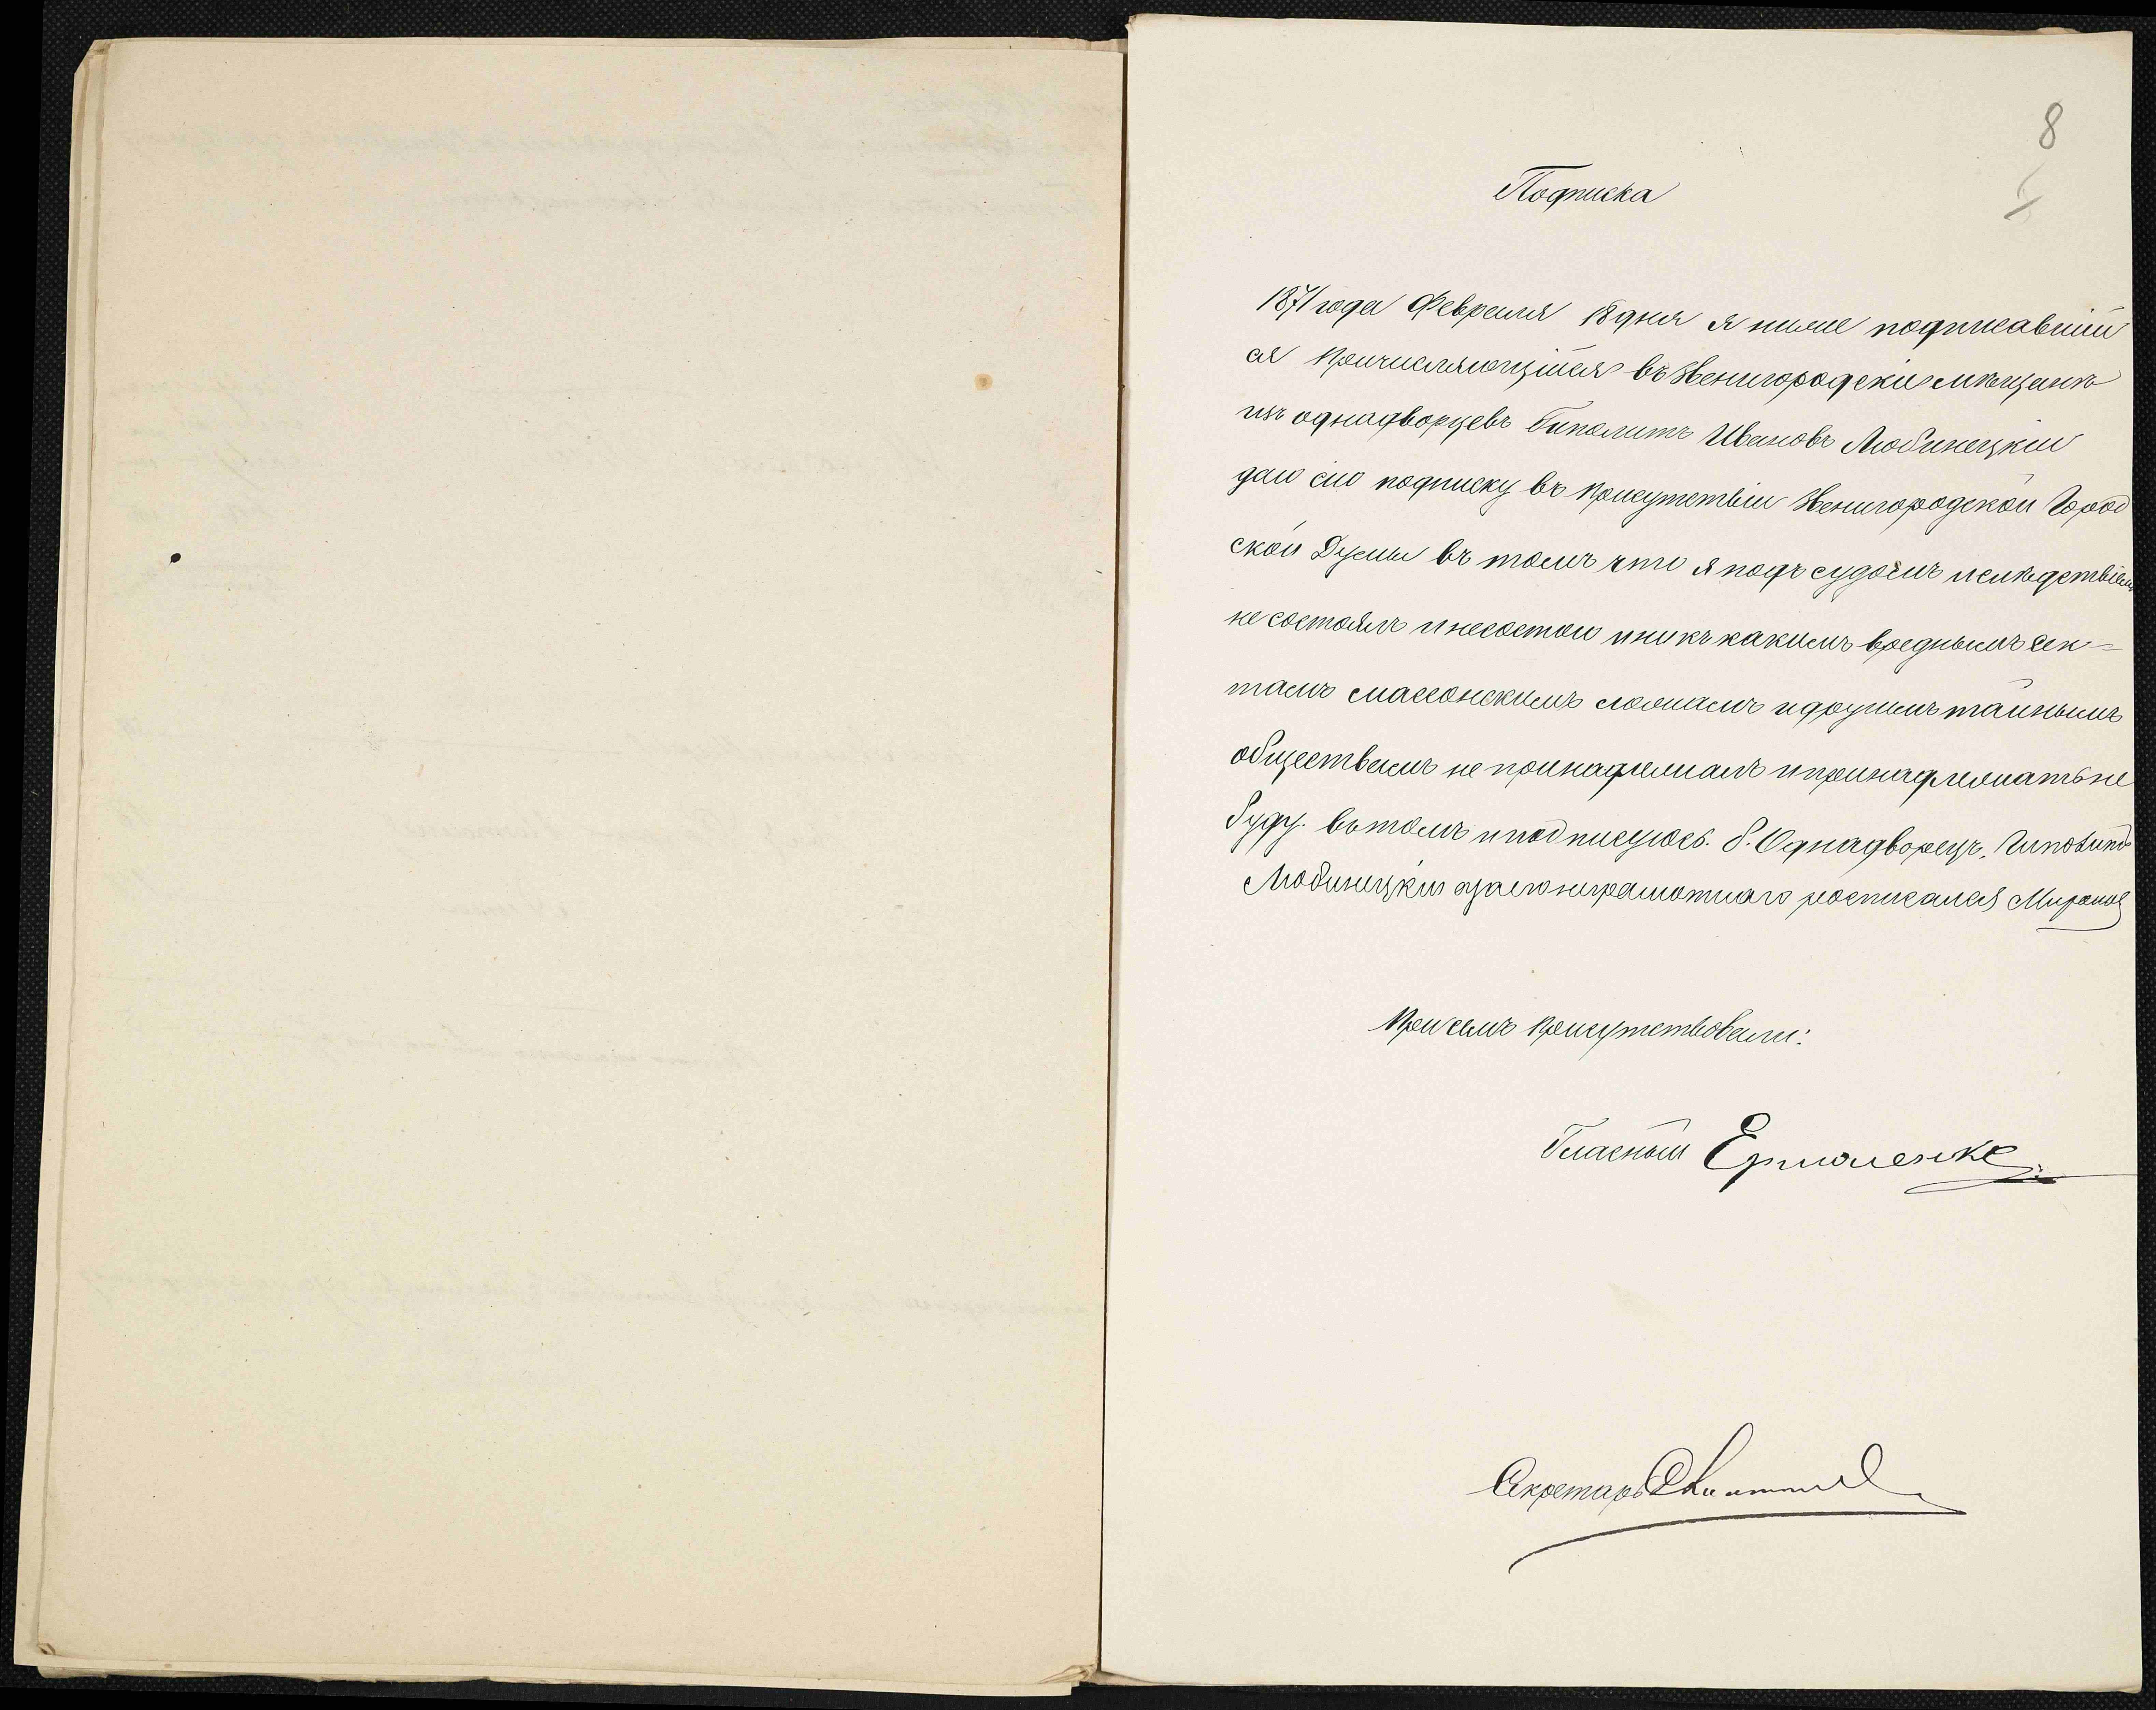 8
Подписка
1871 года Февраля 18 дня я ниже подписавшій
ся причисляющійся въ Звенигородскіе мѣщане
изъ однадворцевъ Гиполитъ Ивановъ Любинецкій
даю сію подписку въ присутствіи Звенигородской Город
ской Думы въ томъ что я подъ судомъ и слѣдствіемъ
не состоялъ и несостою и никъ какимъ вреднымъ сек=
тамъ массонскимъ ложамъ и другимъ тайнымъ
обществамъ не принадлежалъ и принадлежать не
буду. въ томъ и подписуюсь. б. Однадворецъ. Гиполитъ
Любинецкій а за его неграмотнаго росписался Миронов
При семъ присутствовали:
Гласный Ермоленко
Секретарь